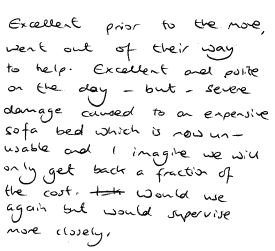 Excellent prior to the move,
went out of their way
to help. Excellent and polite
on the day - but - severe
damage caused to an expensive
sofa bed which is now un-
usable and I imagine we will
only get back a fraction of
the cost. Would use
again but would supervise
more closely.